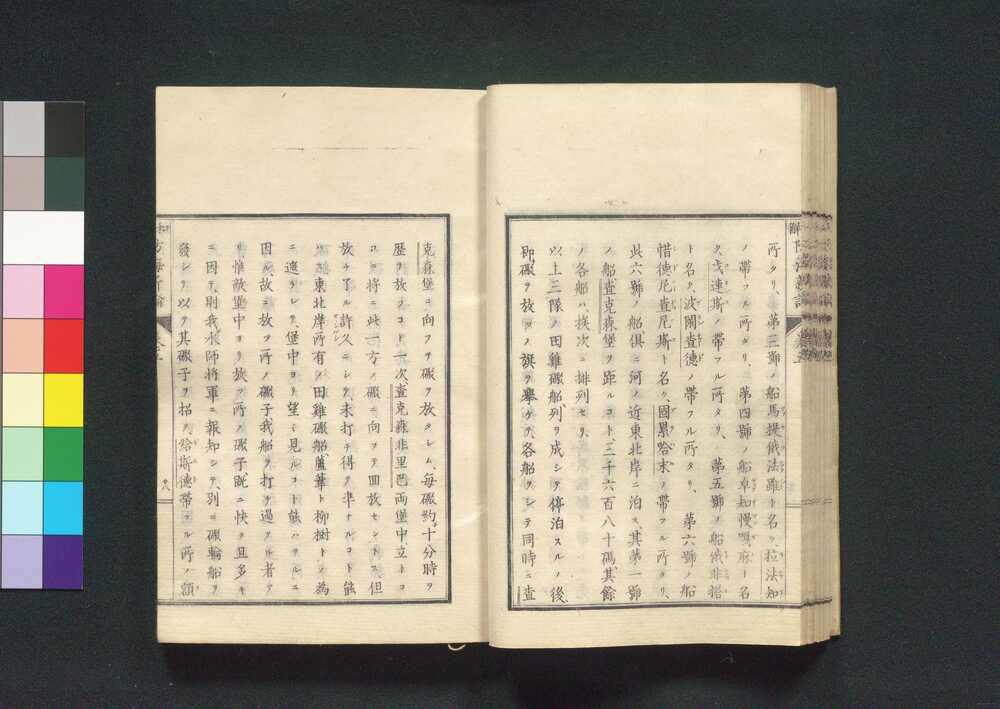 所タリ、第三號ノ船馬提俄法離ト名ク、拉法知
ノ帶フル所タリ、第四號ノ船卓知慢
ク、戈連斯ノ帶フル所タリ、第五號ノ船俄非
ト名ク、波爾查德ノ帶フル所タリ、第六號ノ船
惜德尼查尼斯ト名ク、國累哈末ノ帶フル所タリ、
此六號ノ船俱ニ河ノ近東北岸ニ泊ス、其第一號
ノ船查克森堡ヲ距ルコト三千六百八十碼、其餘
ノ各船ハ挨次ニ排列セリ、
以上三隊ノ田雞礮船列ヲ成シテ停泊スルノ後、
即礮ヲ放タメノ旗ヲ擧ケテ、各船ヲシテ同時ニ查
克森堡ニ向フテ礮ヲ放タレム、每礮約十分時ヲ
歷テ放ツコト一次、查克森非里邑兩堡中立トコ
ロニ將ニ此一方ノ礮ニ向ヲテ回放セントス、但
放チ了ル許久ニシテ、未打チ得テ準ナルコト能
東北岸所有ノ田雞礮船蘆葦ト柳樹トノ為
ニ遮ラレテ、堡中ヨリ望ミ見ルコト能ハサルニ
因ル、故ニ放ツ所ノ礮子我船ヲ打チ過クル者ア
リ、惟敵堡中ヨリ放ツ所ノ礮子旣ニ快ク且多キ
ニ因テ、則我水師將軍ニ報知シテ、列ニ礮輪船ヲ
發シテ以テ其礮子ヲ招ク、給斯德帶フル所ノ額